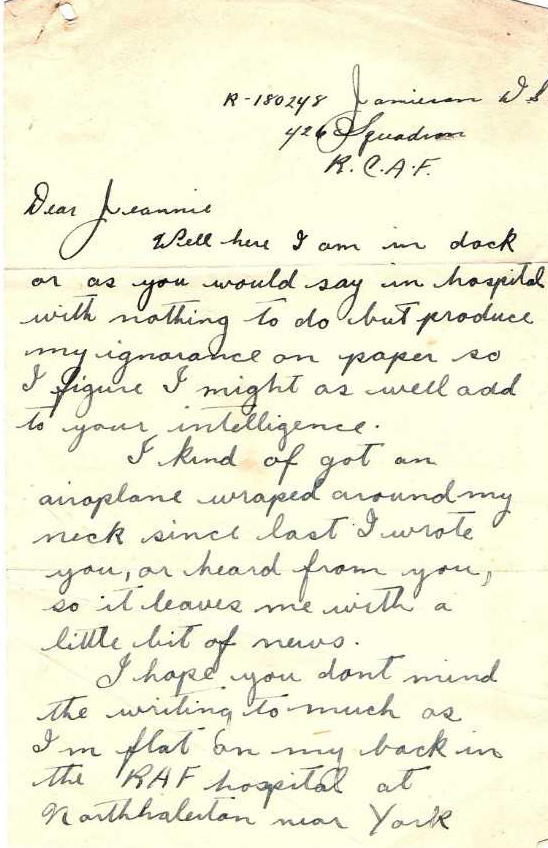 R-180248 Jamieson D S
426 Squadron
R.C.A.F.
Dear Jeannie
Well here I am in dock
or as you would say in hospital
with nothing to do but produce
my ignorance on paper so
I figure I might as well add
to your intelligence.
I kind of got an
airoplane wraped around my
neck since last I wrote
you, or heard from you,
so it leaves me with a
little bit of news.
I hope you dont mind
the writing to much as
I'm flat on my back in
the RAF hospital at
Northhalerton near York